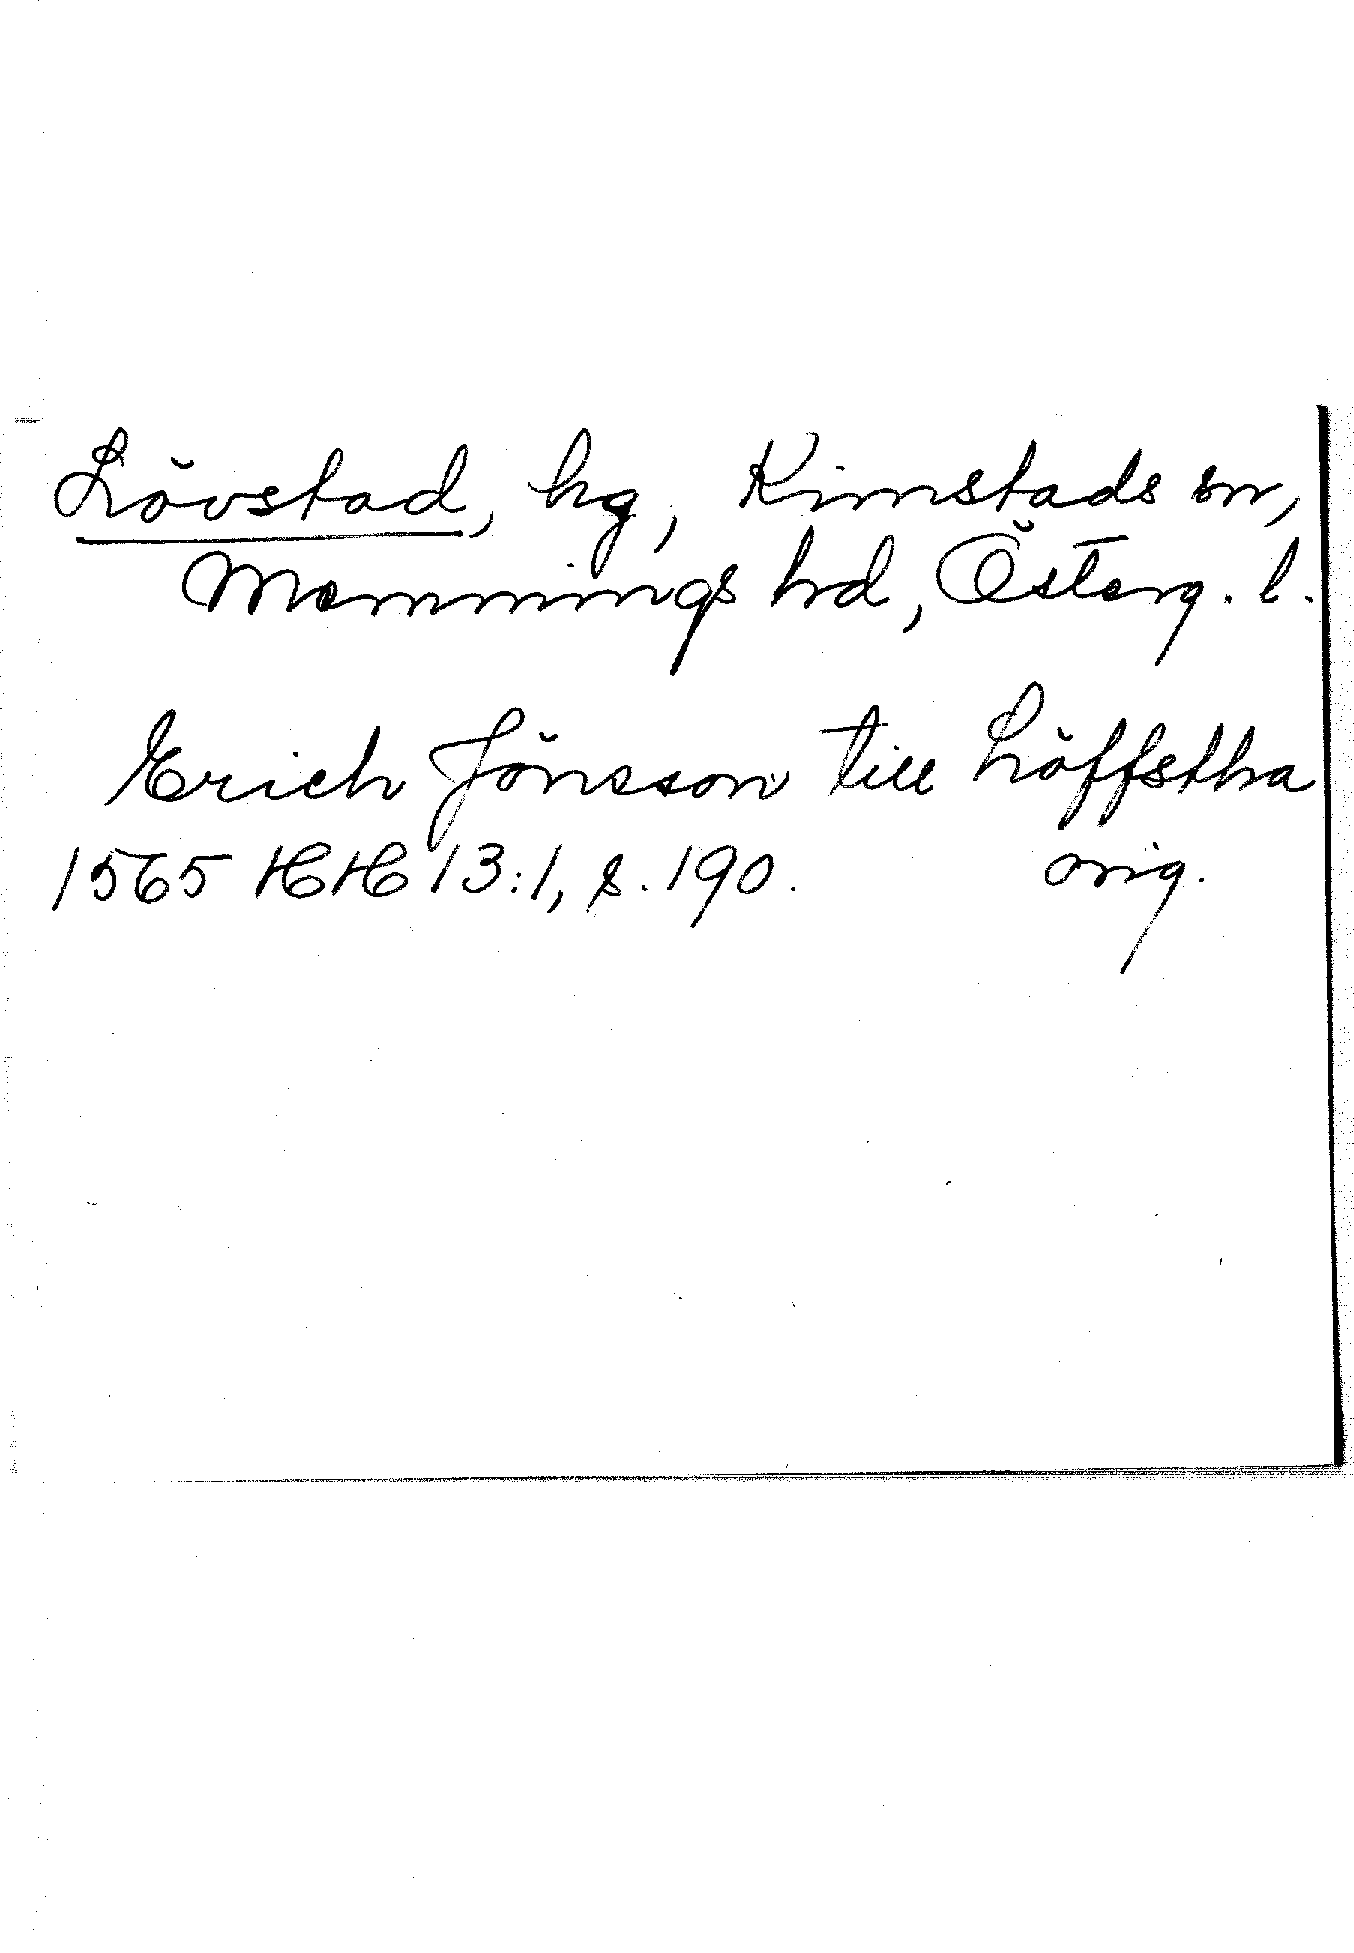 Lövstad, hg, Kimstads sn,
Memmings hd, Österg. l.
Erich Jönsson till Löffstha
1565 HH 13:1, s. 190. orig.